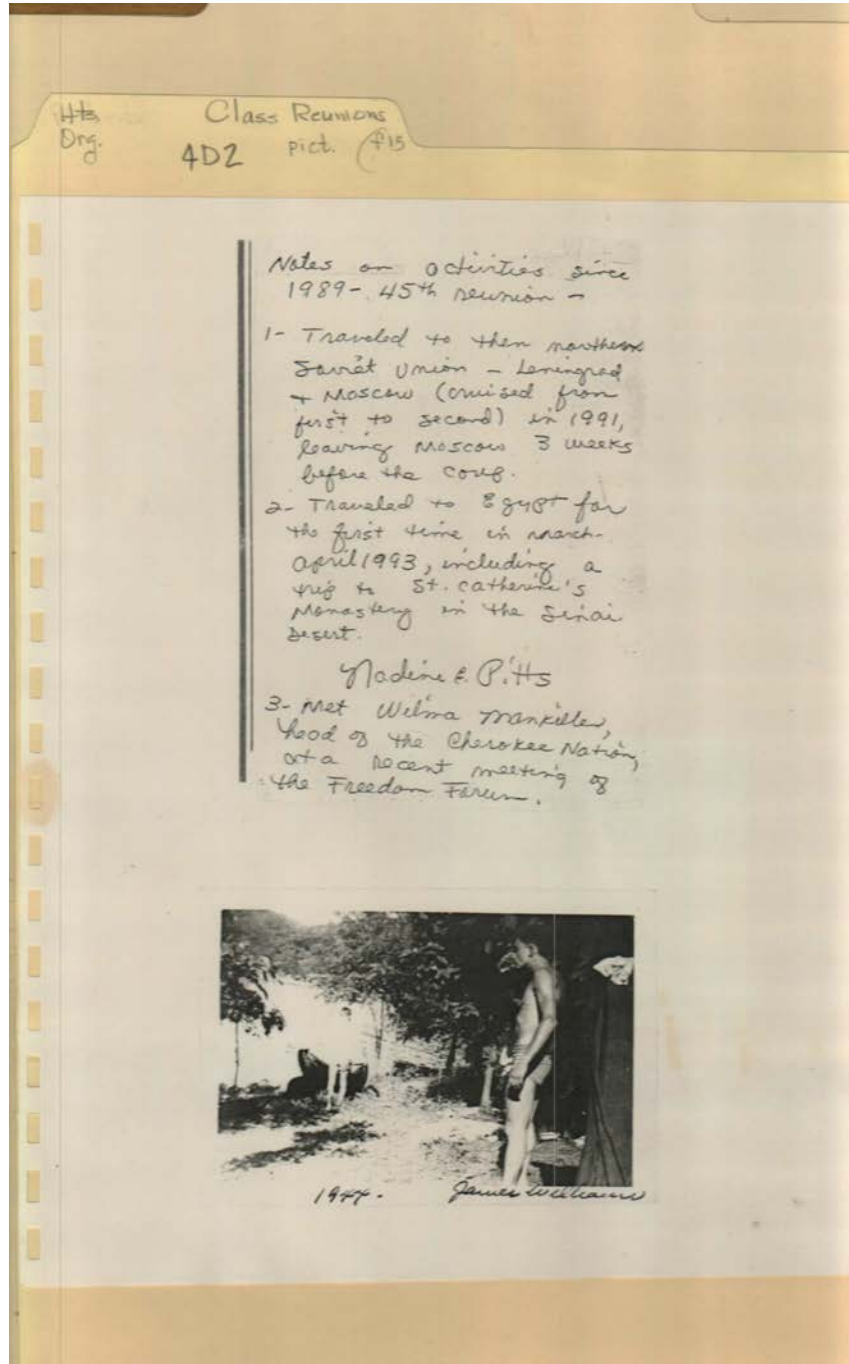 Hts Class Reunions
Org. 4D2 pict. f15
Notes on activities since
1989-45th reunion -
1- Traveled to then northern
Soviet Union - Leningrad
+ Moscow (cruised from
first to second) in 1991,
leaving Moscow 3 weeks
before the coup.
2- Traveled to Egypt for
the first time in March-
April 1993, including a
trip to St. Catherine's
Monastery in the Sinai
Desert.
Nadine E. Pitts
3- Met Wilma Mankiller,
head of the Cherokee Nation,
at a recent meeting of
the Freedom Forum.
1944. James Williams